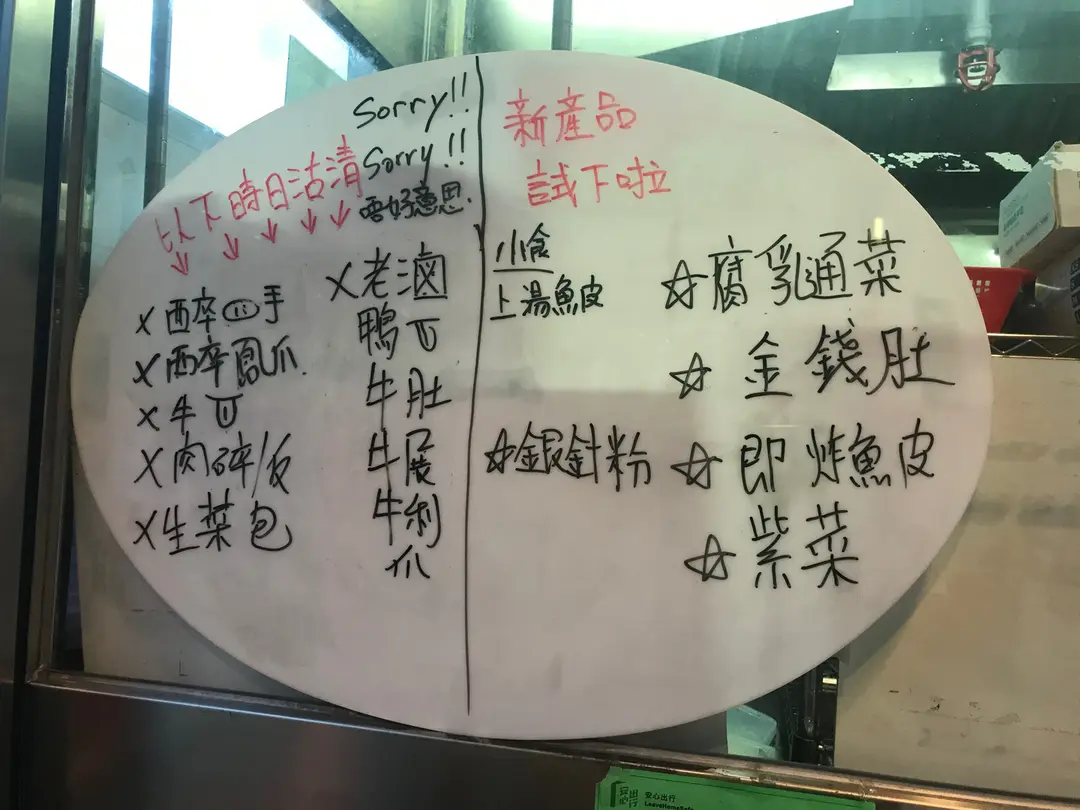 Sorry!!
Sorry.!!
唔好意思.
以下時日沽清
↓ ↓ ↓ ↓ ↓
x 酉卒 手
x 酉卒鳳爪.
x 牛
x 肉碎反
x 生菜包
x 老滷
鴨
牛肚
牛展
牛利
爪
新產品
試下啦
小食
上湯魚皮
☆銀針粉
☆腐乳通菜
☆金錢肚
☆即炸魚皮
☆紫菜
安心出行